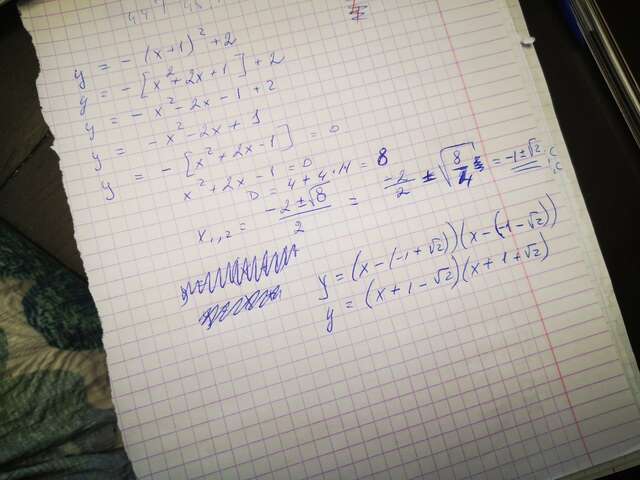 y = - (x+1)² + 2
y = - [x² + 2x + 1] + 2
y = - x² - 2x - 1 + 2
y = - x² - 2x + 1
y = - [x² + 2x - 1] = 0
x² + 2x - 1 = 0
D = 4 + 4·1·1 = 8
x₁,₂ = (-2 ± √8)/2 = -2/2 ± √(8/4) = -1 ± √2
y = (x - (-1 + √2))(x - (-1 - √2))
y = (x + 1 - √2)(x + 1 + √2)